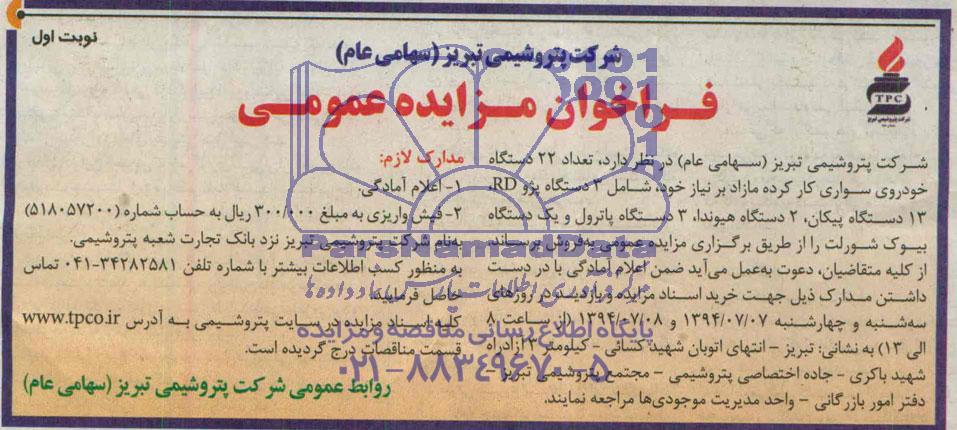 نوبت اول
شرکت پتروشیمی تبریز (سهامی عام)
فراخوان مزایده عمومی
TPC
شرکت پتروشیمی تبریز
شرکت پتروشیمی تبریز (سهامی عام) در نظر دارد، تعداد ۲۲ دستگاه
خودروی سواری کار کرده مازاد بر نیاز خود، شامل ۳ دستگاه پژو RD،
۱۳ دستگاه پیکان، ۲ دستگاه هیوندا، ۳ دستگاه پاترول و یک دستگاه
بیوک شورلت را از طریق برگزاری مزایده عمومی به‌فروش برساند،
از کلیه متقاضیان، دعوت به‌عمل می‌آید ضمن اعلام آمادگی با در دست
داشتن مدارک ذیل جهت خرید اسناد مزایده و بازدید در روزهای
سه‌شنبه و چهارشنبه ۱۳۹۴/۰۷/۰۷ و ۱۳۹۴/۰۷/۰۸ (از ساعت ۸
الی ۱۳) به نشانی: تبریز – انتهای اتوبان شهید کسائی – کیلومتر ۳ آزادراه
شهید باکری – جاده اختصاصی پتروشیمی – مجتمع پتروشیمی تبریز –
دفتر امور بازرگانی – واحد مدیریت موجودی‌ها مراجعه نمایند.
مدارک لازم:
۱- اعلام آمادگی.
۲- فیش واریزی به مبلغ ۳۰۰/۰۰۰ ریال به حساب شماره (۵۱۸۰۵۷۲۰۰)
به‌نام شرکت پتروشیمی تبریز نزد بانک تجارت شعبه پتروشیمی.
به منظور کسب اطلاعات بیشتر با شماره تلفن ۳۴۲۸۲۵۸۱-۰۴۱ تماس
حاصل فرمایید.
کلیه اسناد مزایده در سایت پتروشیمی به آدرس www.tpco.ir
قسمت مناقصات درج گردیده است.
روابط عمومی شرکت پتروشیمی تبریز (سهامی عام)
ParsNamadData
پایگاه اطلاع رسانی مناقصه و مزایده
۰۲۱-۸۸۳۴۹۶۷۰-۵